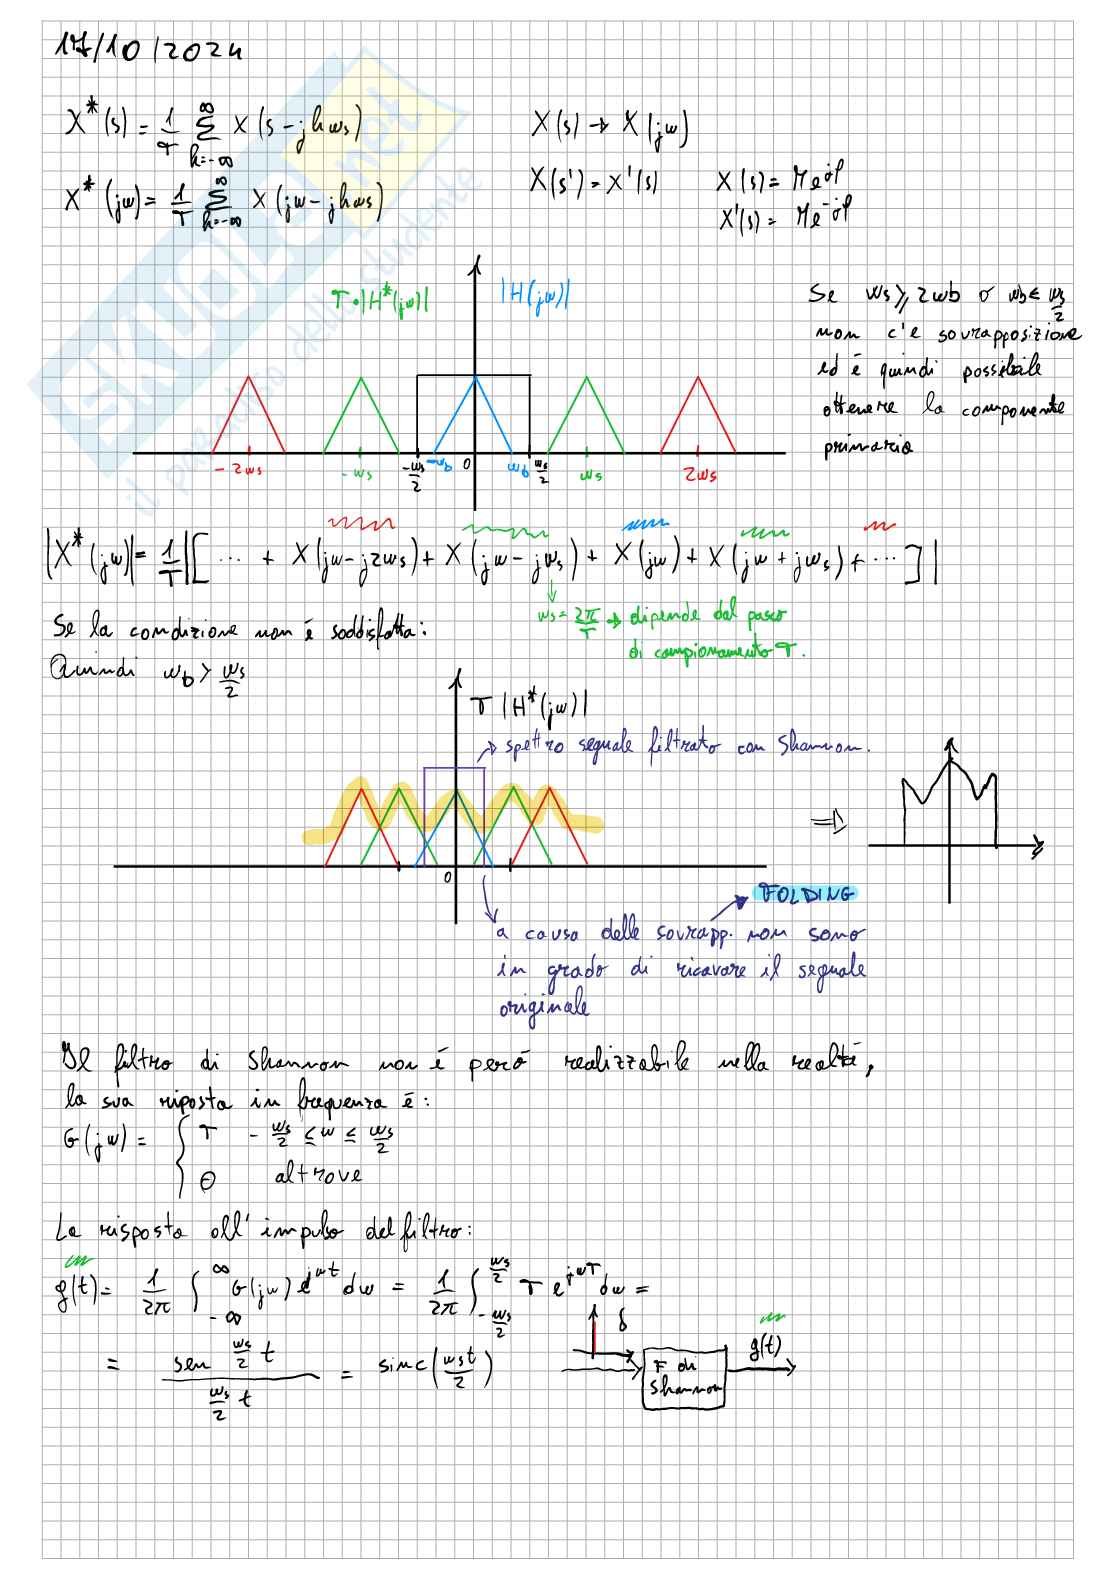 17/10/2024
X*(s) = 1/T Σ_{k=-∞}^{∞} X(s-jkωs)
X(s) → X(jω)
X*(jω) = 1/T Σ_{k=-∞}^{∞} X(jω-jkωs)
X(s') = X'(s)
X(s) = Me^{jφ}
X'(s) = Me^{-jφ}
T·|H*(jω)|
|H(jω)|
Se ωs ≥ 2ωb o ωb ≤ ωs/2
non c'è sovrapposizione
ed è quindi possibile
ottenere la componente
primaria
-2ωs
-ωs
-ωs/2
-ωb
0
ωb
ωs/2
ωs
2ωs
|X*(jω)| = 1/T |[ ... + X(jω-j2ωs) + X(jω-jωs) + X(jω) + X(jω+jωs) + ... ]|
ωs = 2π/T → dipende dal passo
di campionamento T.
Se la condizione non è soddisfatta:
Quindi ωb > ωs/2
T |H*(jω)|
→ spettro segnale filtrato con Shannon.
0
⇒
FOLDING
a causa delle sovrapp. non sono
in grado di ricavare il segnale
originale
Il filtro di Shannon non è però realizzabile nella realtà,
la sua riposta in frequenza è:
G(jω) = { T   -ωs/2 ≤ ω ≤ ωs/2
0   altrove
La risposta all'impulso del filtro:
g(t) = 1/2π ∫_{-∞}^{∞} G(jω) e^{jωt} dω = 1/2π ∫_{-ωs/2}^{ωs/2} T e^{jωT} dω =
= sen ωs/2 t / ωs/2 t = sinc(ωst/2)
δ
F di
Shannon
g(t)
SKUOLA.net
il paradiso dello studente